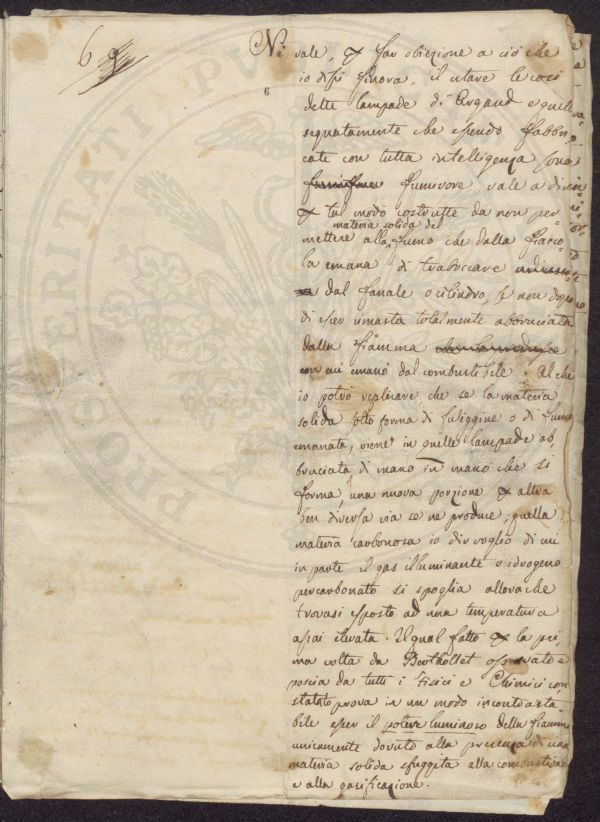 6
6
Nè vale, p far obiezione a ciò che
io dissi finora, il citare le così
dette lampade di Argand e quelle
segnatamente che essendo fabbri,
cate con tutta intelligenza sono
fumivore, vale a dire
p tal modo costrutte da non per,
materia solida del
mettere alla fumo che dalla fiacco,
la emana di traboccare
dal fanale o cilindro, se non dopo
di esser rimasta totalmente abbruciata
dalla fiamma
con cui emanò dal combustibile. Al che
io potrò replicare, che se la materia
solida sotto forma di fuliggine o di fumo
emanata, viene in quelle lampade ab,
bruciata di mano in mano che si
forma, una nuova porzione p altra
ben diversa via se ne produce; quella
materia carbonosa io dir voglio di cui
in parte il gas illuminante o idrogeno
percarbonato si spoglia allora che
trovasi esposto ad una temperatura
assai elevata. Il qual fatto p la pri,
ma volta da Berthollet osservato e
poscia da tutti i Fisici e Chimici con
statato prova in un modo incontrasta,
bile esser il potere luminoso della fiamma
unicamente dovuto alla presenza di una
materia solida sfuggita alla combustione
e alla gasificazione.